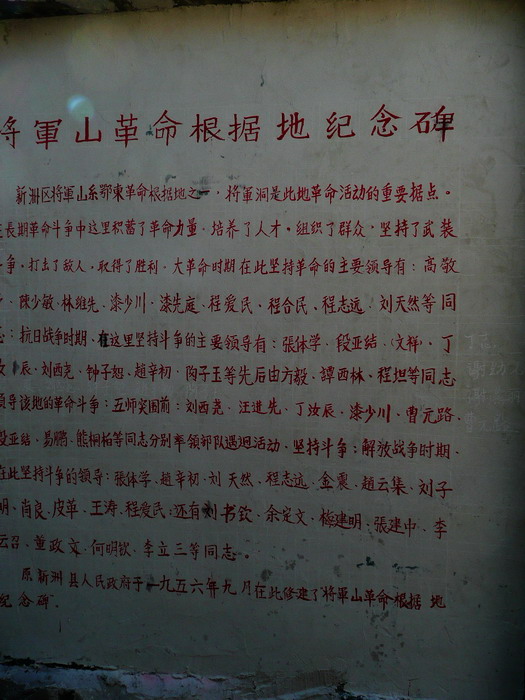 将軍山革命根据地纪念碑
新洲区将軍山系鄂東革命根据地之一，将軍洞是此地革命活动的重要据点。
長期革命斗争中这里积蓄了革命力量，培养了人才，组织了群众，坚持了武装
争，打击了敌人，取得了胜利。大革命时期在此坚持革命的主要领导有：高敬
陳少敏、林维先、漆少川、漆先庭、程爱民、程合民、程志远、刘天然等同
：抗日战争时期、在这里坚持斗争的主要领导有：張体学、段亚结、文祥、丁
辰、刘西尧、钟子恕、赵辛初、陶子玉等先后由方毅、譚西林、程坦等同志
领导该地的革命斗争；五师突围前：刘西尧、汪进先、丁汝辰、漆少川、曹元路、
段亚结、易鹏、熊桐柏等同志分别率领部队过迴活动、坚持斗争；解放战争时期、
在此坚持斗争的领导：張体学、赵辛初、刘天然、程志远、金震、趙云集、刘子
明、肖良、皮革、王涛、程爱民；还有刘书钦、余定文、梅建明、張建中、李
云召、董政文、何明钦、李立三等同志。
原新洲县人民政府于一九五六年九月在此修建了"将軍山革命根据地
纪念碑"。